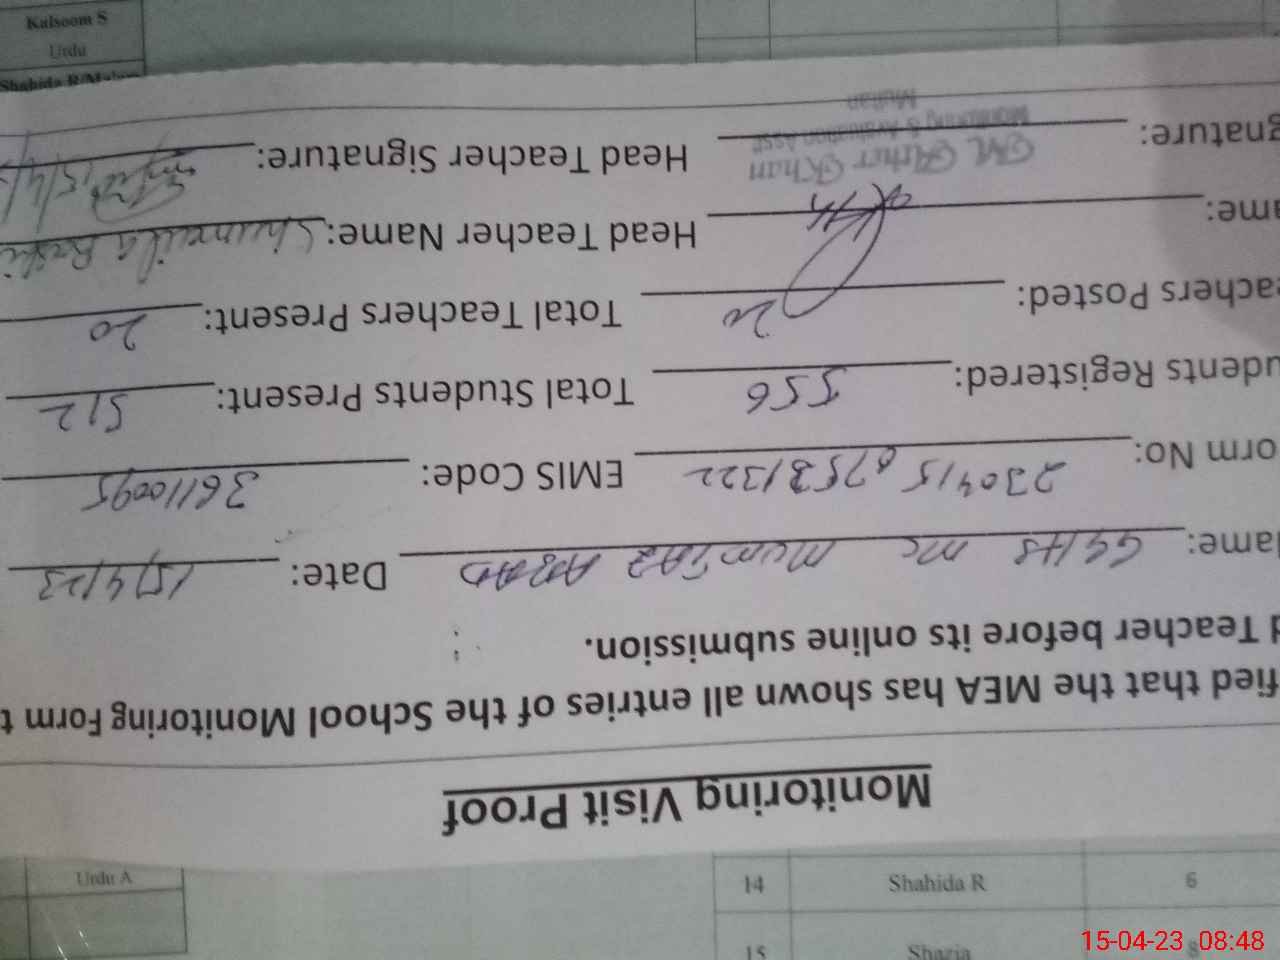 Kalsoom S
Urdu
Monitoring Visit Proof
fied that the MEA has shown all entries of the School Monitoring Form t
d Teacher before its online submission.
ame: GGHS MC MumTAZ ABAD Date: 15/4/23
orm No: 230415 67531322 EMIS Code: 36110095
udents Registered: 556 Total Students Present: 512
eachers Posted: 20 Total Teachers Present: 20
ame: Head Teacher Name:
gnature: Khan Monitoring & Evaluation Asstt Multan Head Teacher Signature: 15/4/
Urdu A
14 Shahida R 6
15 Shazia 8
15-04-23 08:48